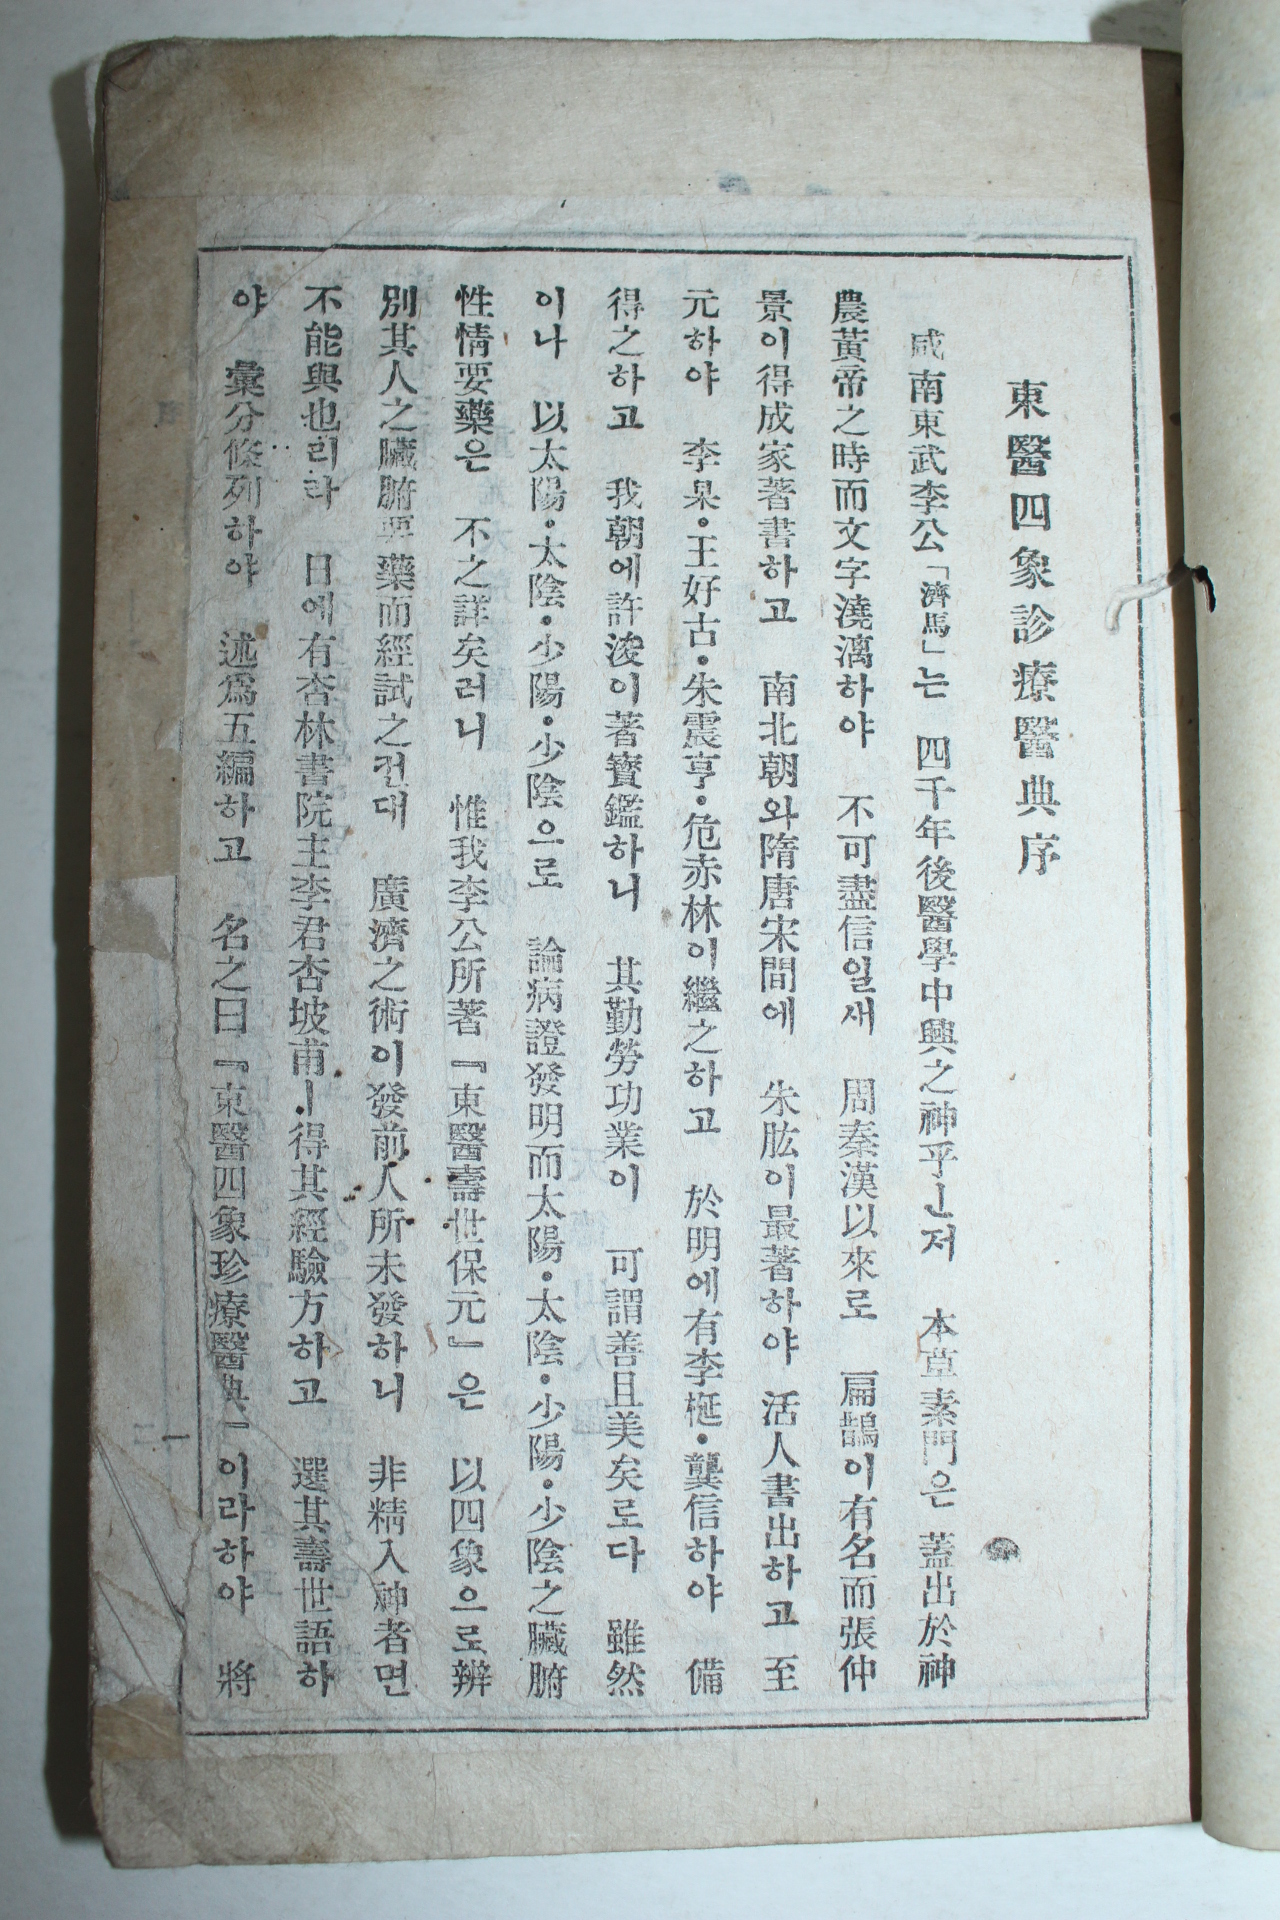 東醫四象診療醫典序
咸南東武李公「濟馬」는 四千年後醫學中興之神乎ㅣㄴ저 本草素門은 蓋出於神
農黃帝之時而文字澆漓하야 不可盡信일새 周秦漢以來로 扁鵲이有名而張仲
景이得成家著書하고 南北朝와隋唐宋間에 朱肱이最著하야 活人書出하고 至
元하야 李杲·王好古·朱震亨·危赤林이繼之하고 於明에有李梴·龔信하야 備
得之하고 我朝에許浚이著寶鑑하니 其勤勞功業이 可謂善且美矣로다 雖然
이나 以太陽·太陰·少陽·少陰으로 論病證發明而太陽·太陰·少陽·少陰之臟腑
性情要藥은 不之詳矣러니 惟我李公所著『東醫壽世保元』은 以四象으로辨
別其人之臟腑要藥而經試之컨대 廣濟之術이發前人所未發하니 非精入神者면
不能與也리라 日에有杏林書院主李君杏坡甫ㅣ·得其經驗方하고 選其壽世語하
야 彙分條列하야 述爲五編하고 名之曰『東醫四象珍療醫典』이라하야 將
一